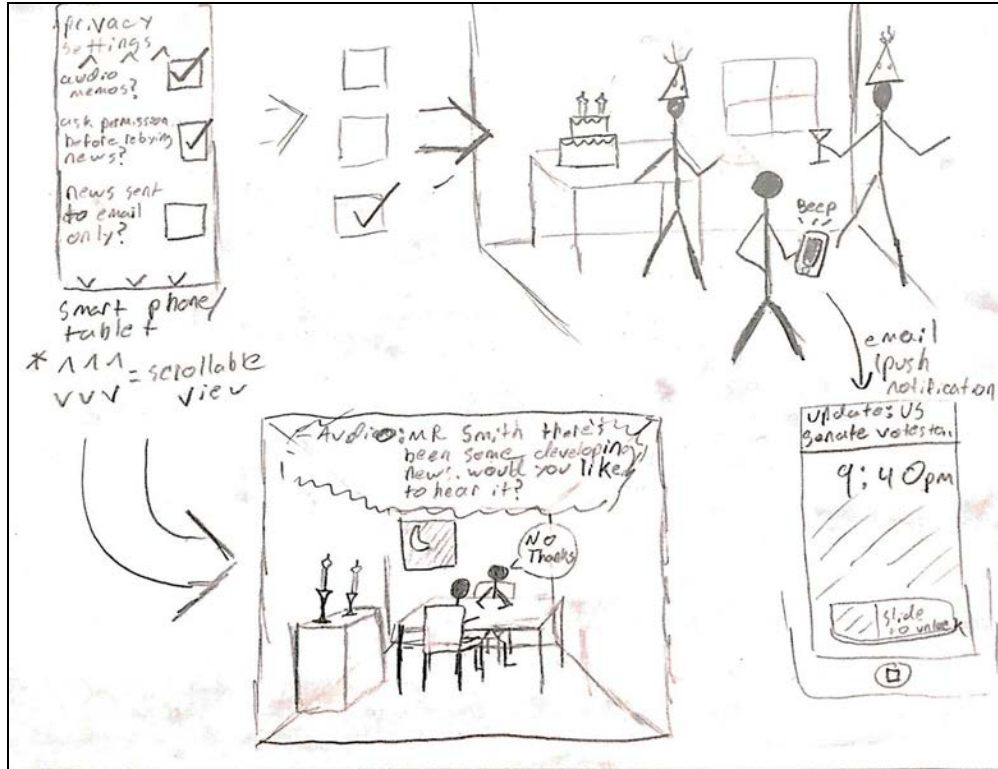 privacy
settings
audio
memos?
ask permission
before relaying
news?
news sent
to email
only?
smart phone/
tablet
* ^ ^ ^
v v v = scrollable
view
Beep
email
/push
notification
update: US
senate votes to..
9:40pm
slide
to unlock
- Audio: MR Smith there's
been some developing
news. would you like
to hear it?
No
Thanks